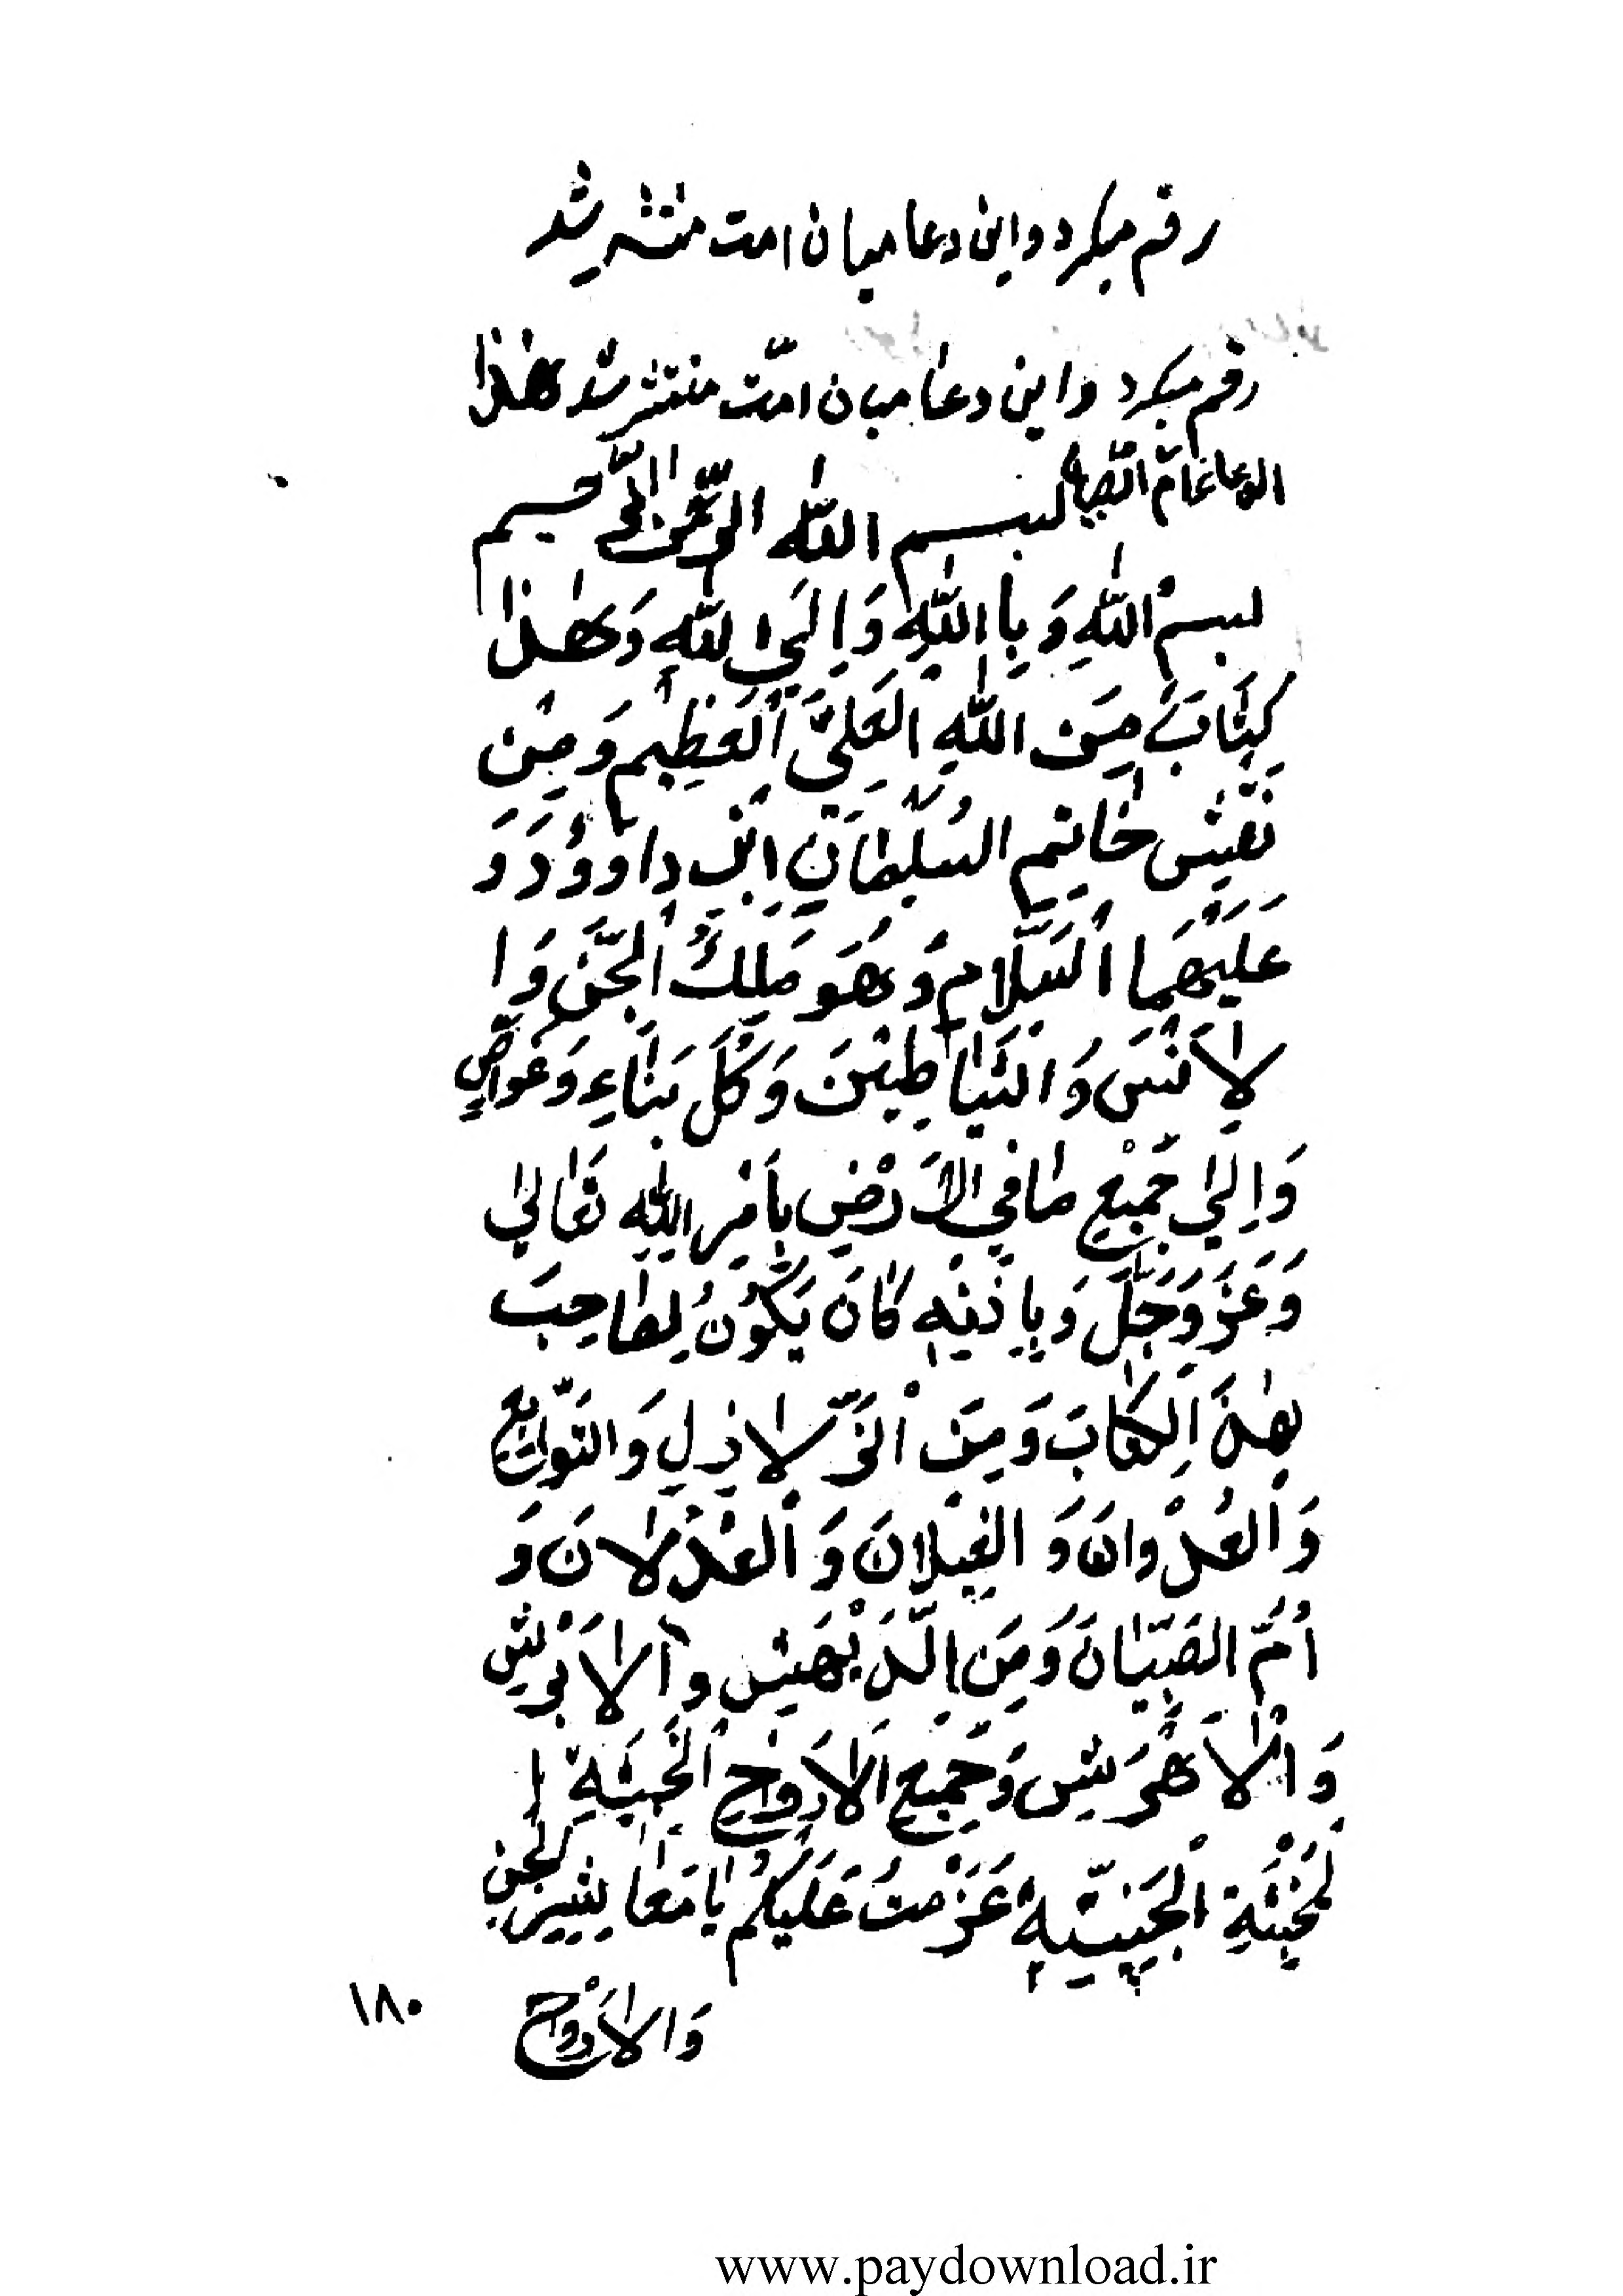 رقم میکرد و این دعا میان امت منتشر شد
رقم میکرد و این دعا میان امّت منتشر شد هٰذا
الدعا تمام بسم الله الرّحمن الرّحیم
بسمْ اللهِ وَ بِا اللهِ وَ اِلَی اللهِ وَ هٰذا
کِتٰابٌ مِنَ اللهِ العَلِیَّ اَلعَظِیْم وَ مِنْ
نَقْشِ خٰاتِمِ السُلَیْمٰانِ ابْنِ دٰاووُدَ وَ
عَلَیْهِمٰا اَلسَّلٰام وَ هُوَ مَلِکُ اَلجّنَ وَ ا
لِاٰنْسَ وَ الشَیٰاطِیْنَ وَ کُلَ بَنّٰاءِ وَ غَوّاصٍ
وَ اِلیٰ جَمیْعِ مٰا فِی الْاَرْضِ بِاَمْرِ اللهِ تَعٰالیٰ
وَ عَزَ وَ جَلَّ وَ بِاِذْنِهِ کٰانَ یَکوُنُ لِصٰاحِبَ
هٰذَ اَلِکتٰابَ وَ مِنَ وَ التَوّابِعِ
وَ اَلعُدْوانَ وَ الغِیْلانَ وَ وَ
اُمَّ الصِبّیٰانَ وَ مِنَ و
وَ وَ جَمیْعِ اَلاَرْوٰاحِ اَلخَبیثَةِ ا
لخَبِیْثَةِ اَلجِنِیّتِهِ عَزَمْتُ عَلَیْکُمْ یٰا مَعٰاشِیرَ الجِنِ
وَ الاَرْوٰاح
۱۸۰
www.paydownload.ir